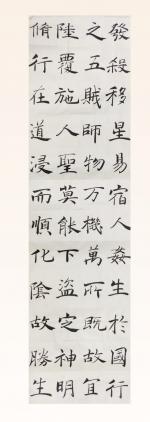 發殺移星易宿人姦生於國行
之五賊師物万機萬所既故宜
陸覆施人聖莫能下盜定神明
脩行在道浸而順化陰故勝生